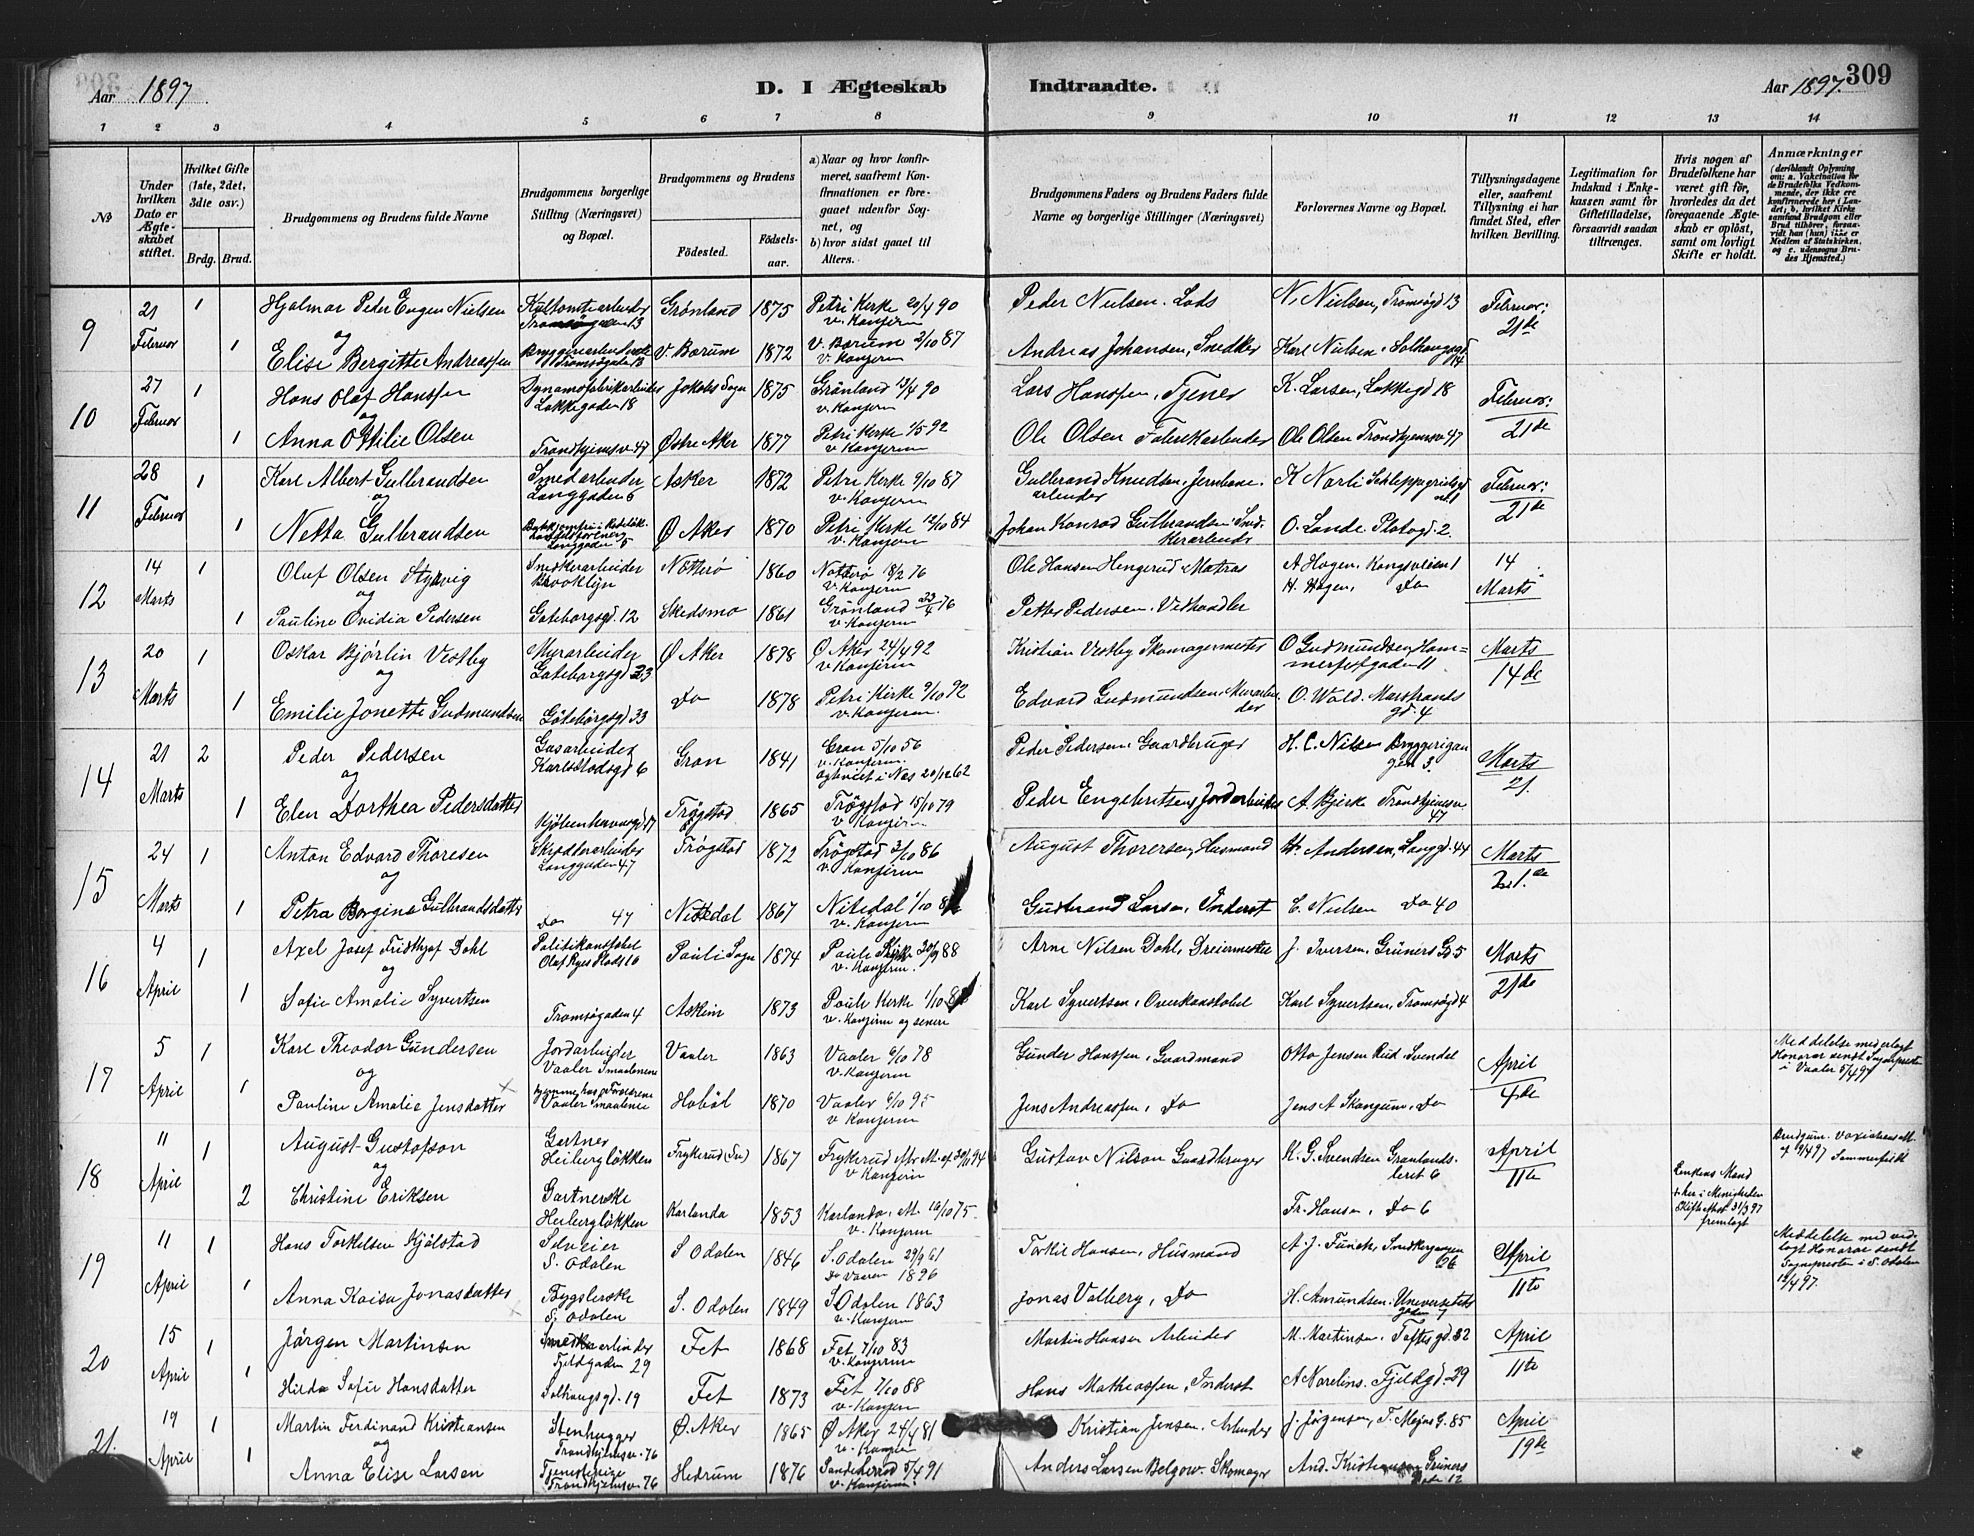 Aar 1897 D. I Ægteskab Indtraadte. Aar 1897. 309
1 2 3 4 5 6 7 8 9 10 11 12 13 14
No
Under hvilken Dato er Ægteskabet stiftet.
Hvilket Gifte (1ste, 2det, 3dte osv.)
Brdg. Brud.
Brudgommens og Brudens fulde Navne
Brudgommens borgerlige Stilling (Næringsvei) og Bopæl.
Brudgommens og Brudens
Fødested. Fødselsaar.
a) Naar og hvor konfirmeret, saafremt Konfirmationen er foregaaet udenfor Sognet, og
b) hvor sidst gaaet til Alters.
Brudgommens Faders og Brudens Faders fulde Navne og borgerlige Stillinger (Næringsvei)
Forlovernes Navne og Bopæl.
Tillysningsdagene eller, saafremt Tillysning ei har fundet Sted, efter hvilken Bevilling.
Legitimation for Indskud i Enkekassen samt for Giftetilladelse, forsaavidt saadan tiltrænges.
Hvis nogen af Brudefolkene har været gift før, hvorledes da det foregaaende Ægteskab er opløst, samt om lovligt Skifte er holdt.
Anmærkninger
(deriblandt Oplysning om: a. Vakcination for de Brudefolks Vedkommende, der ikke ere konfirmerede her i Landet; b. hvilket Kirkesamfund Brudgom eller Brud tilhører, forsaavidt han (hun) ikke er Medlem af Statskirken, og c. udensogns Brudes Hjemsted.)
9 21 Februar 1 Hjalmar Peder Eugen Nielsen Grønland 1875 Petri Kerke 20/4 90 Peder Nielsen. Lods N. Nielsen, Tromsøgd 13 Februar: 21de
v. Konfirm
og
1 Elise Bergitte Andreassen Tromsøgade 13 V. Bærum 1872 V. Bærum 2/10 87 Andreas Johansen, Snedker Karl Nielsen
v. Konfirm
10 27 Februar 1 Hans Olaf Hanssen Dynamofabrikarbeider Jakobs Sogn 1875 Grönland 13/4 90 Lars Hanssen, Tjener K. Larsen, Lakkegd 18 Februar: 21de
og Lakkegaden 18 v. Konfirm
1 Anna Ottilie Olsen Trondhjemsv. 47 Østre Aker 1877 Petri Kerke 1/5 92 Ole Olsen Ole Olsen Trondhjemsv 47
v. Konfirm
11 28 Februar 1 Karl Albert Gulbrandsen Smedarbeider Asker 1872 Petri Kerke 9/10 87 Gulbrand Knudsen, Jernbanearbeider K Norli Februar: 21de
og Langgaden 5 v. Konfirm
1 Netta Gulbrandsen Langgaden 5 Ø Aker 1870 Petri Kerke 12/10 84 Johan Konrad Gulbrandsen Snedkerarbeider O. Lande. Platogd. 2.
v. Konfirm
12 14 Marts 1 Oluf Olsen Styrvig Snedkerarbeider Nøtterø 1860 Nøtterø 18/2 76 Ole Hansen Hengerud Matros A Hagen, Kongsveien 1 14 Marts
og Brooklyn v. Konfirm H. Hagen, Do
1 Pauline Ovidia Pedersen Gøteborgsgd. 12 Skedsmo 1861 Grønland 23/4 76 Petter Pedersen. Vedhandler
v. Konfirm
13 20 Marts 1 Oskar Bjørlin Vestby Murarbeider Ø Aker 1878 Ø Aker 24/4 92 Kristian Vestby Skomagermester O Gudmundsen Hammerfestgaden 11 Marts 14de
og Gøteborgsgd 33 v Konfirm
1 Emilie Jonette Gudmundsen Göteborgsgd 33 Do 1878 Petri Kirke 9/10 92 Edvard Gudmundsen. Murarbeider O. Wold. Marstrandsgd. 4
v. Konfirm.
14 21 Marts 2 Peder Pedersen Gasarbeider Gran 1841 Gran 5/10 56 Peder Pedersen. Gaardbruger H. C. Nilsen Bryggerigangen 3. Marts 21.
og Karlstadsgd 6 v. Konfirm.
1 Elen Dorthea Pedersdatter Kjøbenhavnsgd 17 Trøgstad 1865 Trøgstad 15/10 79 Peder Engebritsen, Jordarbeider A. Bjerke Trondhjemsv 47
v Konfirm
15 24 Marts 1 Anton Edvard Thoresen Skrædderarbeider Trøgstad 1872 Trøgstad 3/10 86 August Thorersen, Husmand H. Andersen, Langgd. 47 Marts 21.de
og Langgaden 47 v. Konfirm
1 Petra Borgine Gulbrandsdatter Do 47 Nitedal 1867 Nitedal 1/10 Gudbrand Larsen, Inderst C. Nielsen Do 40
v. Konfirm
16 4 April 1 Axel Josef Fridthjof Dahl Politikonstabel Pauli Sogn 1874 Pauli Kirke 30/9 88 Arne Nilsen Dahl, Dreiermester J. Iversen, Grüners G. 5 Marts 21de
og Olaf Ryes Plads 10 v. Konfirm.
1 Sofie Amalie Syvertsen Tromsøgaden 4 Askim 1873 Pauli Kerke 1/10 Karl Syvertsen, Overkonstabel Karl Syvertsen, Tromsøgd 4
v. Konfirm og senere
17 5 April 1 Karl Theodor Gundersen Jordarbeider Vaaler 1863 Vaaler 6/10 78 Gunder Hanssen, Gaardmand Otto Jensen Rud, Svendal April 4de Meddelelse med erlagt Honorar sendt Sognepresten i Vaaler 5/4 97
og Vaaler Smaalenene v. Konfirm
1 Pauline Amalie Jensdatter × hjemme hos Forældrene Vaaler Smaalenene Hobøl 1870 Vaaler 6/10 95 Jens Andreassen, Do Jens A Skangum. Do
v Konfirm
18 11 April 1 August Gustafson Gartner Frykerud (Sv) 1867 Frykerud Gustav Nilson Gaardbruger K. G. Svendsen Grønlandsleret 6 April 11te
og Heibergløkken v Konfirm
2 Christine Eriksen Gartnerske Heibergløkken Karlanda 1853 Karlanda 10/10 75. Fr. Hansen, Do 6 Enkens Mand
v. Konfirm
19 11 April 1 Hans Torkelsen Kjølstad Selveier S. Odalen S Odalen 1846 S. Odalen 29/9 61 Torkil Hansen, Husmand A. J. Funck, Snedkergangen April 11te Meddelelse med vedlagt Honorar sendt Sognepresten i S. Odalen
1 Anna Kaisa Jonasdatter Bygslerske S. Odalen S. Odalen 1849 S Odalen 1863 Jonas Valberg, Do H. Amundsen. Universitetsgaden 7
v. Konfirm
20 15 April 1 Jørgen Martinsen Fjeldgaden 29 Fet 1868 Fet 7/10 83 Martin Hansen Arbeider M. Martinsen, Toftesgd. 32 April 11te
v. Konfirm
1 Hilda Sofie Hansdatter Solhaugsgd. 19 Fet 1873 Fet 7/10 88 Hans Mathiassen, Inderst A Norelius. Fjeldgd. 29
v. Konfirm
21. 19 April 1 Martin Ferdinand Kristiansen Stenhugger Ø. Aker 1865 Ø Aker 24/4 81 Kristian Jensen, Arbeider J. Jörgensen, T. Meyers G. 85 April 19de
og Trondhjemsv. 76 v. Konfirm
1 Anna Elise Larsen Trondhjemsv. 76 Hedrum 1876 Sandeherred 5/4 91 Anders Larsen Belgow. Skomager And. Kristiansen Grüners Gade 12
v. Konfirm.